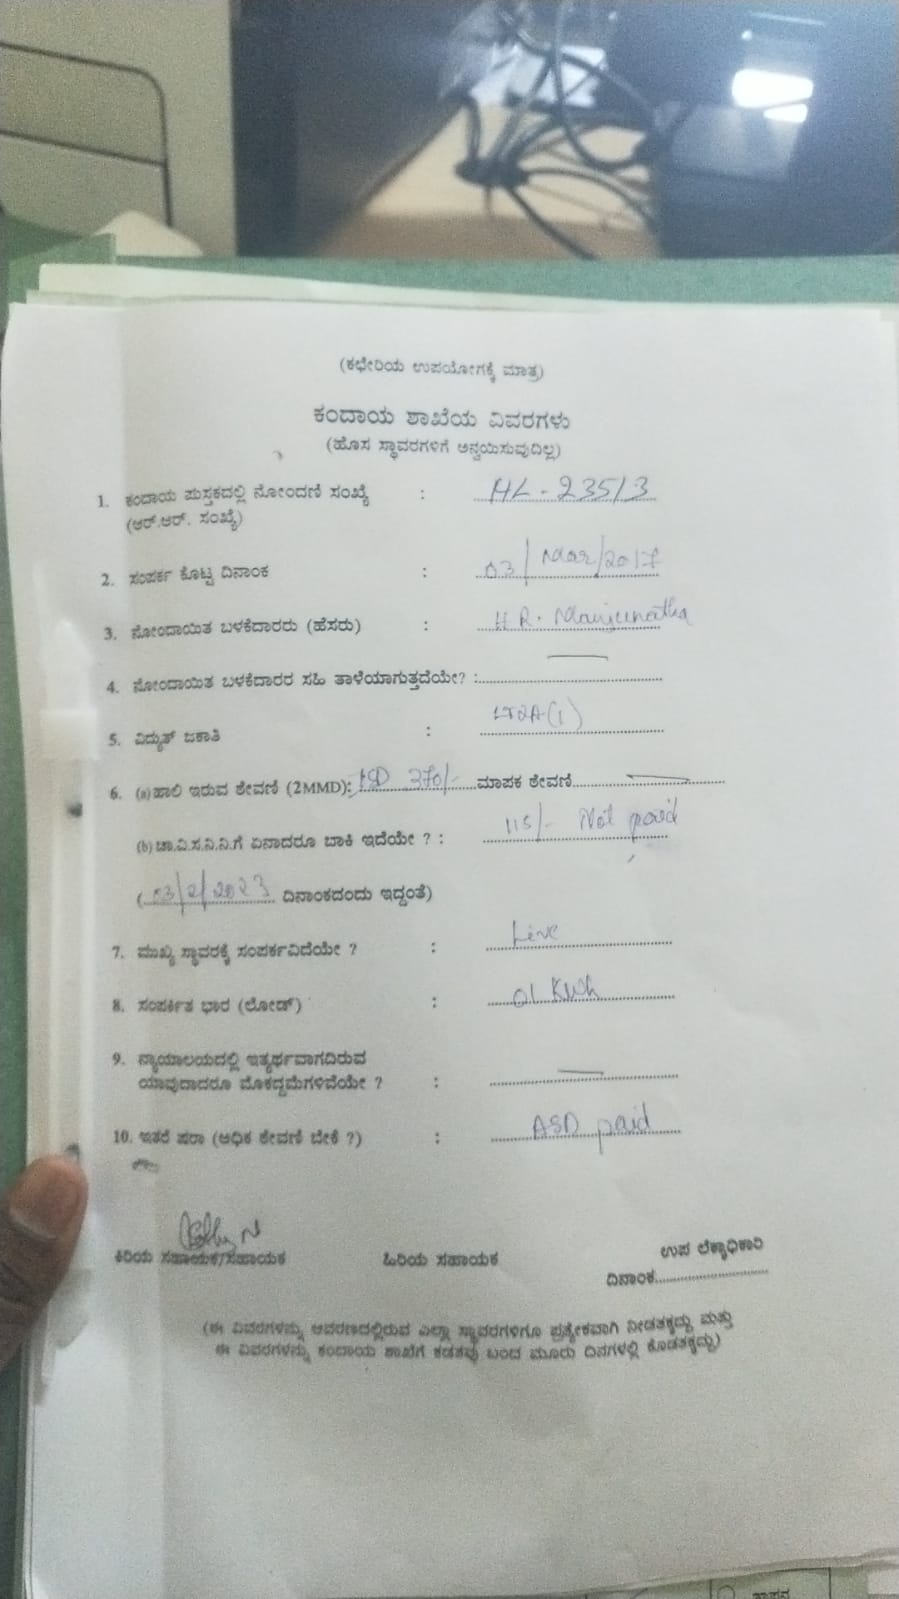 (ಕಛೇರಿಯ ಉಪಯೋಗಕ್ಕೆ ಮಾತ್ರ)
ಕಂದಾಯ ಶಾಖೆಯ ವಿವರಗಳು
(ಹೊಸ ಸ್ಥಾವರಗಳಿಗೆ ಅನ್ವಯಿಸುವುದಿಲ್ಲ)
1. ಕಂದಾಯ ಪುಸ್ತಕದಲ್ಲಿ ನೋಂದಣಿ ಸಂಖ್ಯೆ : HL-23513
(ಆರ್.ಆರ್. ಸಂಖ್ಯೆ)
2. ಸಂಪರ್ಕ ಕೊಟ್ಟ ದಿನಾಂಕ : 03/Mar/2017
3. ನೋಂದಾಯಿತ ಬಳಕೆದಾರರು (ಹೆಸರು) : H R. Manjunatha
4. ನೋಂದಾಯಿತ ಬಳಕೆದಾರರ ಸಹಿ ತಾಳೆಯಾಗುತ್ತದೆಯೇ? : —
5. ವಿದ್ಯುತ್ ಜಕಾತಿ : LT2A(1)
6. (a) ಹಾಲಿ ಇರುವ ಠೇವಣಿ (2MMD): ISD 370/- ಮಾಪಕ ಠೇವಣಿ —
(b) ಚಾ.ವಿ.ಸ.ನಿ.ನಿ.ಗೆ ಏನಾದರೂ ಬಾಕಿ ಇದೆಯೇ ? : 115/- Not paid
(03/2/2023 ದಿನಾಂಕದಂದು ಇದ್ದಂತೆ)
7. ಮುಖ್ಯ ಸ್ಥಾವರಕ್ಕೆ ಸಂಪರ್ಕವಿದೆಯೇ ? : Live
8. ಸಂಪರ್ಕಿತ ಭಾರ (ಲೋಡ್) : 01 KWh
9. ನ್ಯಾಯಾಲಯದಲ್ಲಿ ಇತ್ಯರ್ಥವಾಗದಿರುವ
ಯಾವುದಾದರೂ ಮೊಕದ್ದಮೆಗಳಿವೆಯೇ ? : —
10. ಇತರೆ ಷರಾ (ಅಧಿಕ ಠೇವಣಿ ಬೇಕೆ ?) : ASD paid
ಕಿರಿಯ ಸಹಾಯಕ/ಸಹಾಯಕ ಹಿರಿಯ ಸಹಾಯಕ ಉಪ ಲೆಕ್ಕಾಧಿಕಾರಿ
ದಿನಾಂಕ
(ಈ ವಿವರಗಳನ್ನು ಆವರಣದಲ್ಲಿರುವ ಎಲ್ಲಾ ಸ್ಥಾವರಗಳಿಗೂ ಪ್ರತ್ಯೇಕವಾಗಿ ನೀಡತಕ್ಕದ್ದು ಮತ್ತು
ಈ ವಿವರಗಳನ್ನು ಕಂದಾಯ ಶಾಖೆಗೆ ಕಡತವು ಬಂದ ಮೂರು ದಿನಗಳಲ್ಲಿ ಕೊಡತಕ್ಕದ್ದು)